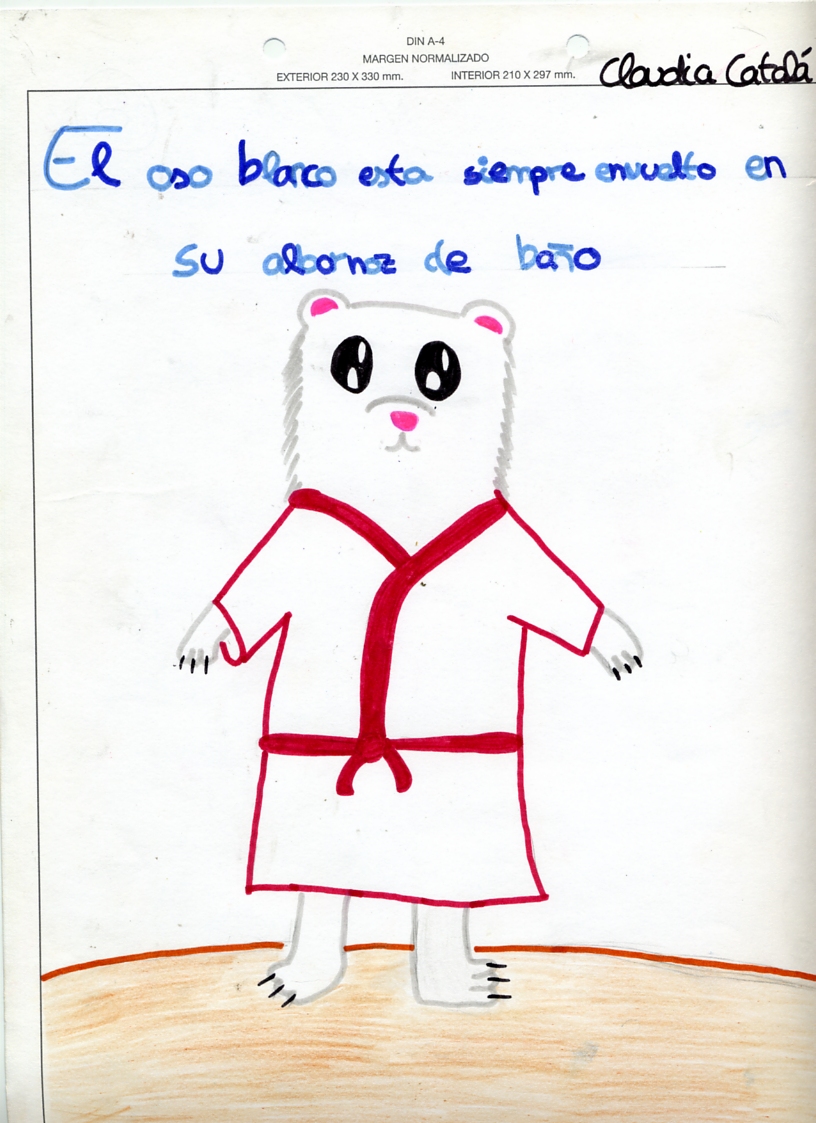 DIN A-4
MARGEN NORMALIZADO
EXTERIOR 230 X 330 mm. INTERIOR 210 X 297 mm.
Claudia Catalá
El oso blanco esta siempre envuelto en
su albornoz de baño